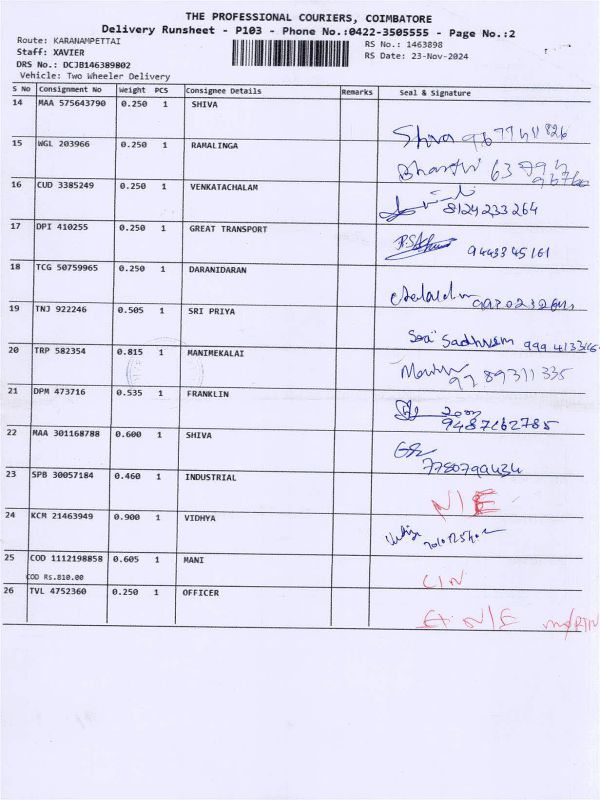 THE PROFESSIONAL COURIERS, COIMBATORE
Delivery Runsheet - P103 - Phone No.:0422-3505555 - Page No.:2
Route: KARANAMPETTAI
RS No.: 1463898
Staff: XAVIER
RS Date: 23-Nov-2024
DRS No.: DCJB146389802
Vehicle: Two Wheeler Delivery
S No Consignment No Weight PCS Consignee Details Remarks Seal & Signature
14 MAA 575643790 0.250 1 SHIVA
Shiva
15 WGL 203966 0.250 1 RAMALINGA
16 CUD 3385249 0.250 1 VENKATACHALAM
8124233264
17 DPI 410255 0.250 1 GREAT TRANSPORT
9443345161
18 TCG 50759965 0.250 1 DARANIDARAN
19 TNJ 922246 0.505 1 SRI PRIYA
20 TRP 582354 0.815 1 MANIMEKALAI
9789311335
21 DPM 473716 0.535 1 FRANKLIN
9487262785
22 MAA 301168788 0.600 1 SHIVA
23 SPB 30057184 0.460 1 INDUSTRIAL
N/E
24 KCM 21463949 0.900 1 VIDHYA
25 COD 1112198858 0.605 1 MANI
COD Rs.810.00
26 TVL 4752360 0.250 1 OFFICER
N/E